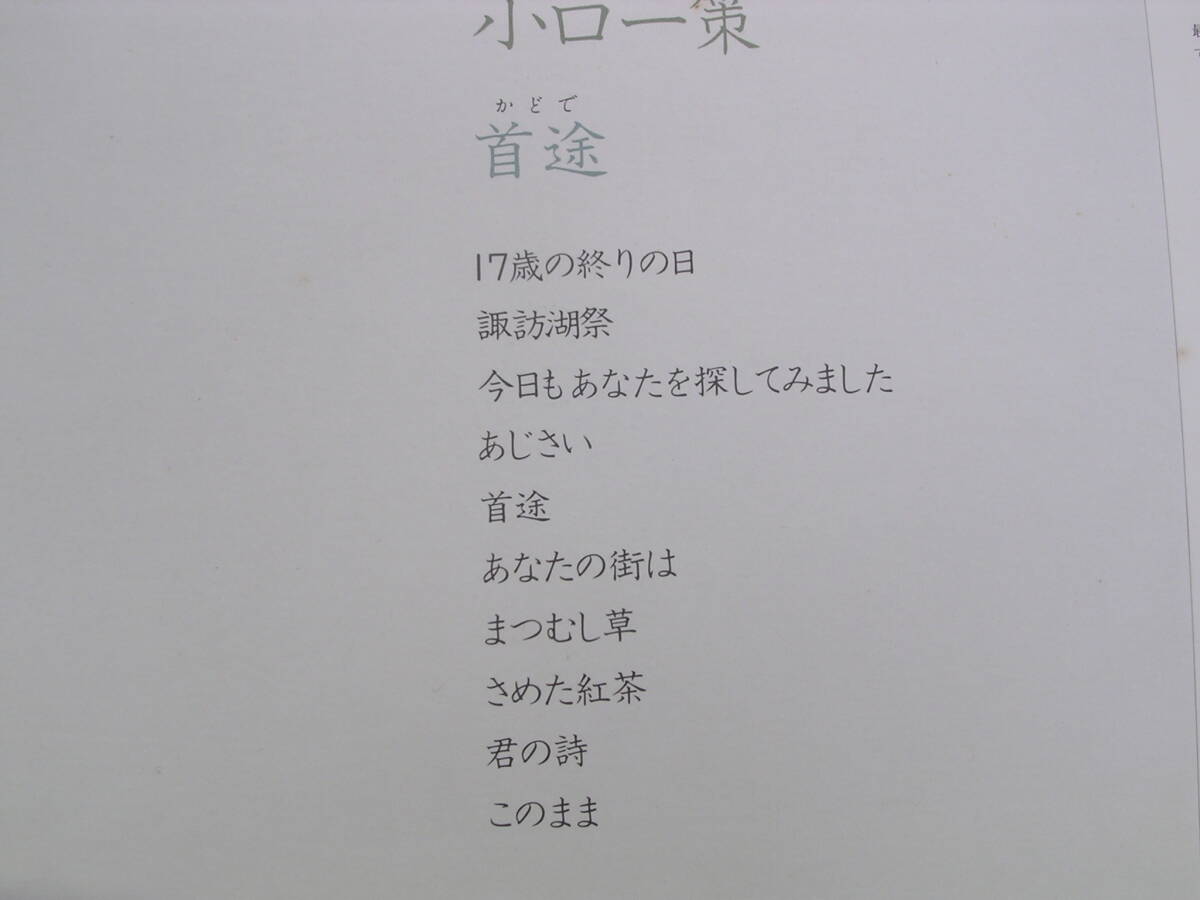 小口一策
かどで
首途
17歳の終りの日
諏訪湖祭
今日もあなたを探してみました
あじさい
首途
あなたの街は
まつむし草
さめた紅茶
君の詩
このまま